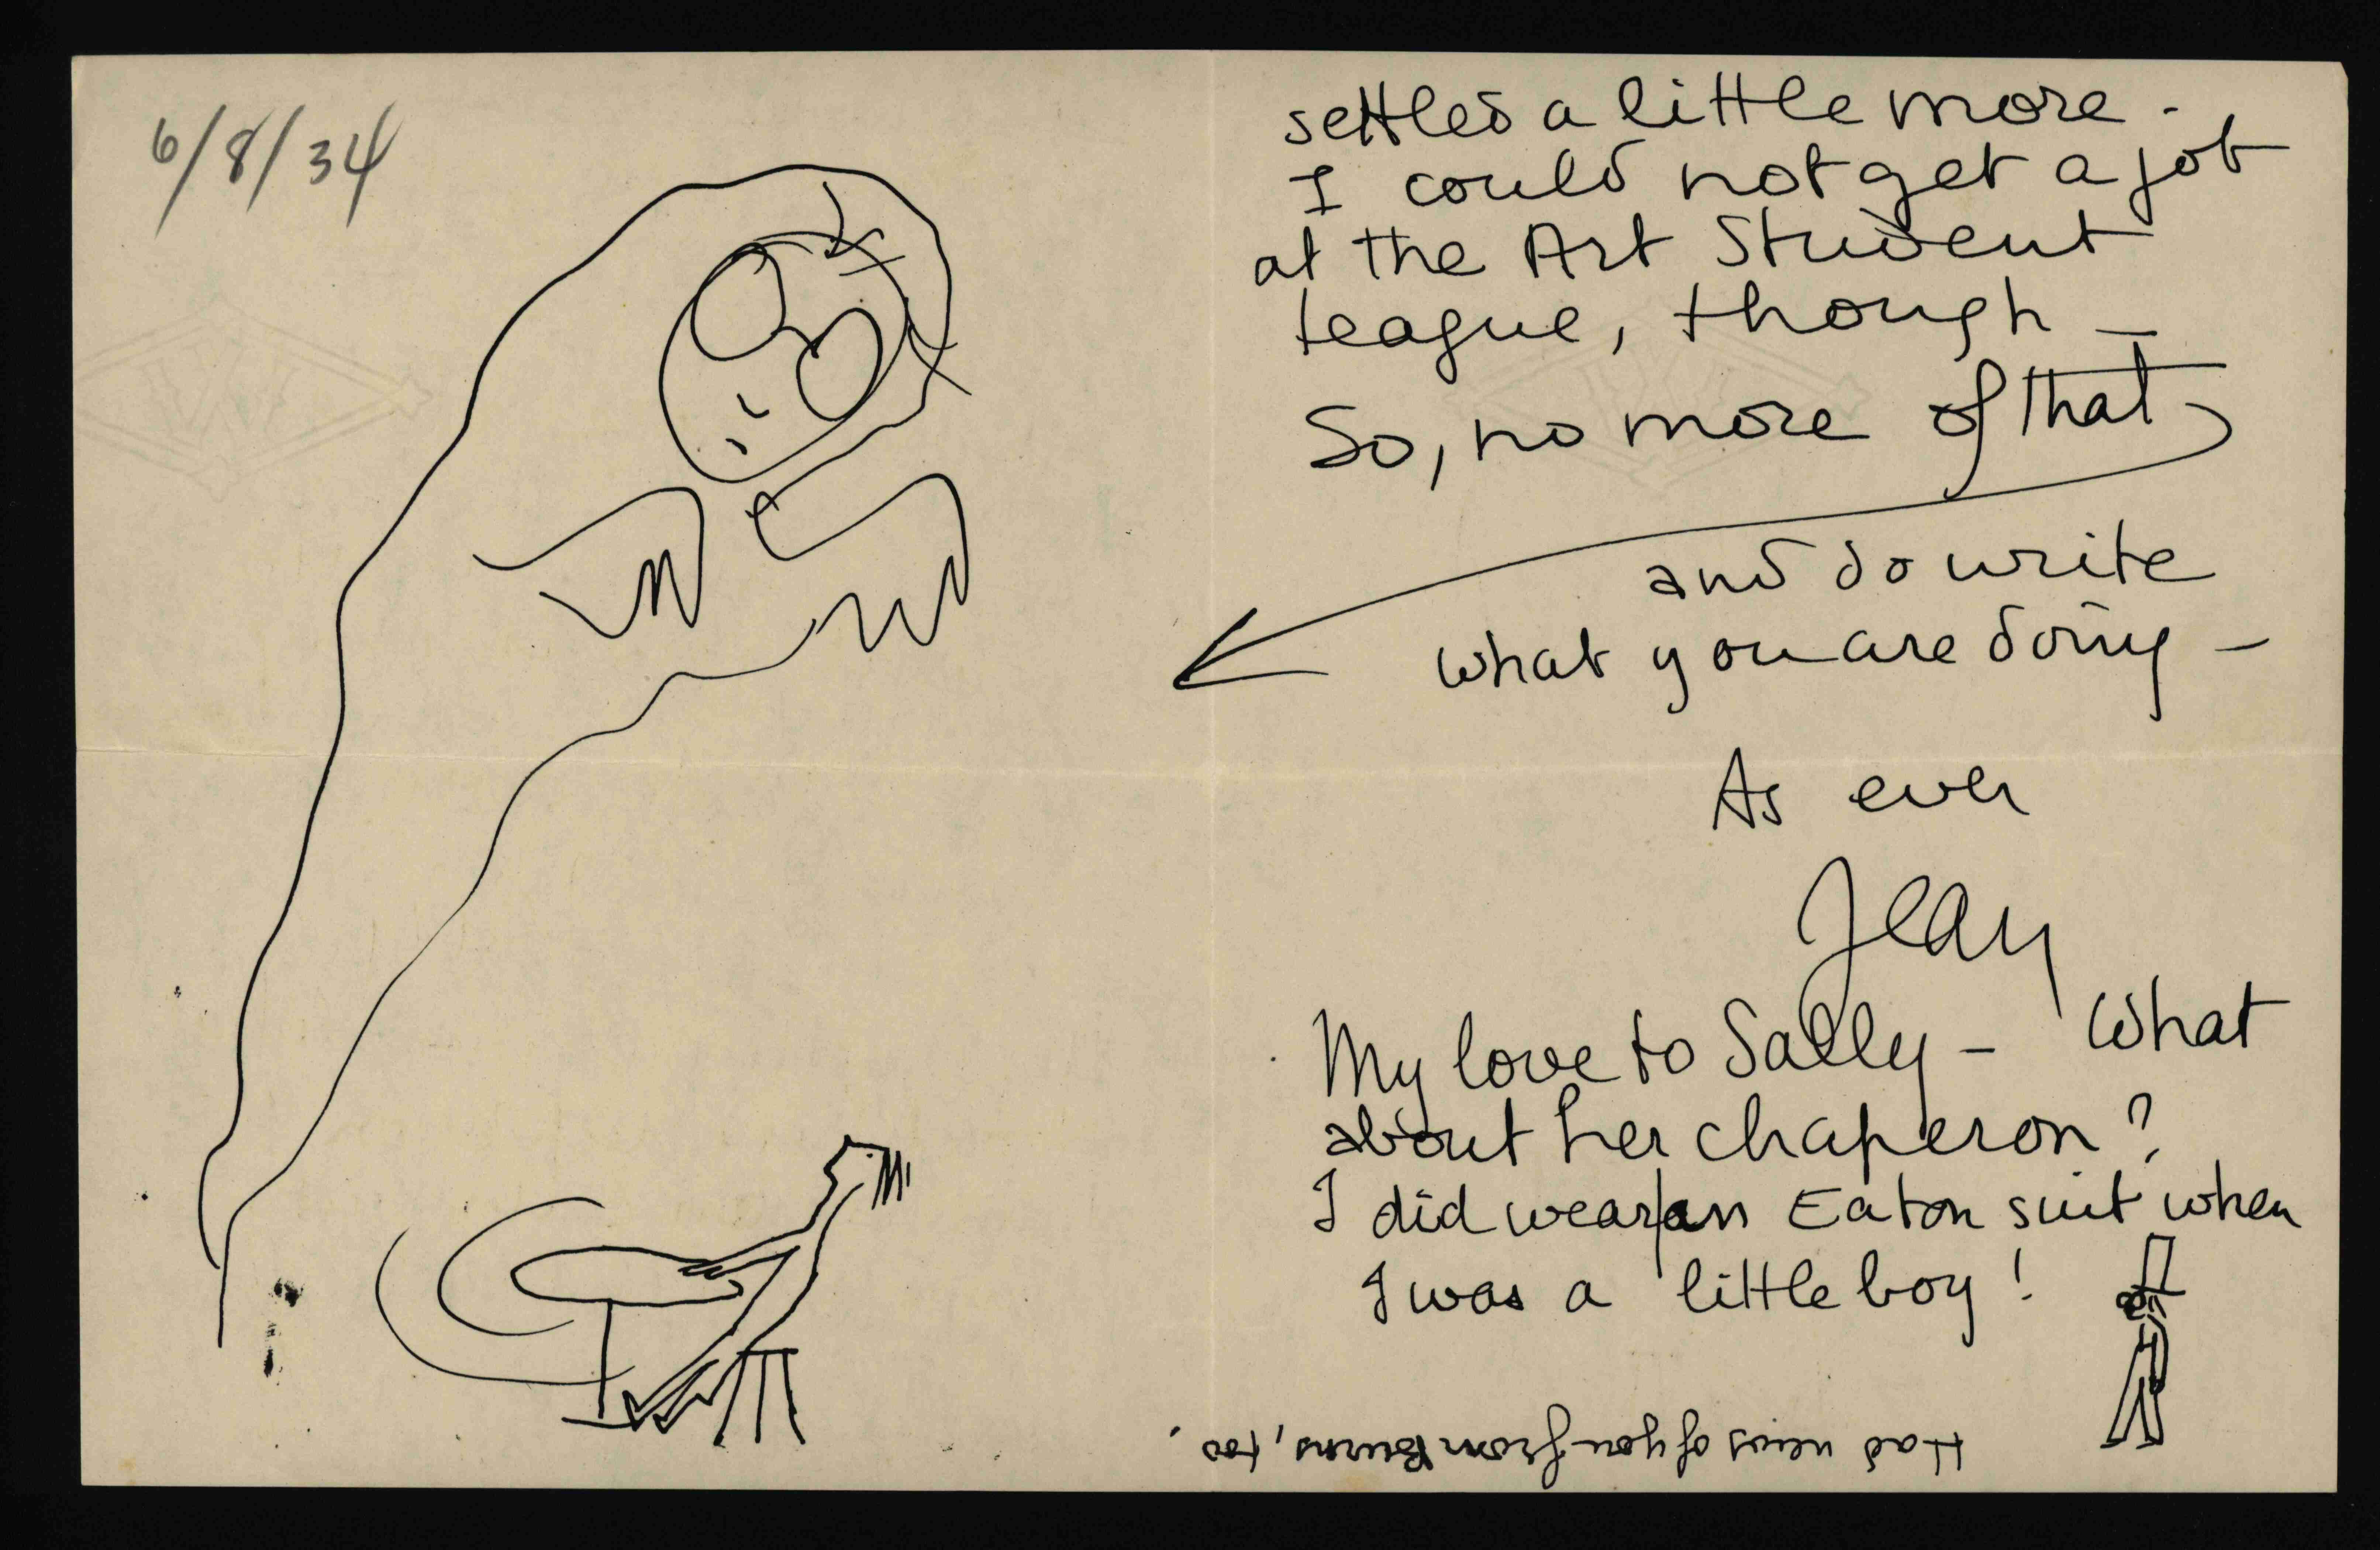 6/8/34
settled a little more -
I could not get a job
at the Art Student
league, though -
So, no more of that
and do write
what you are doing -
As ever
Jean
My love to Sally - What
about her chaperon?
I did wear an Eaton suit when
I was a little boy!
Had news of you from Burns, too.